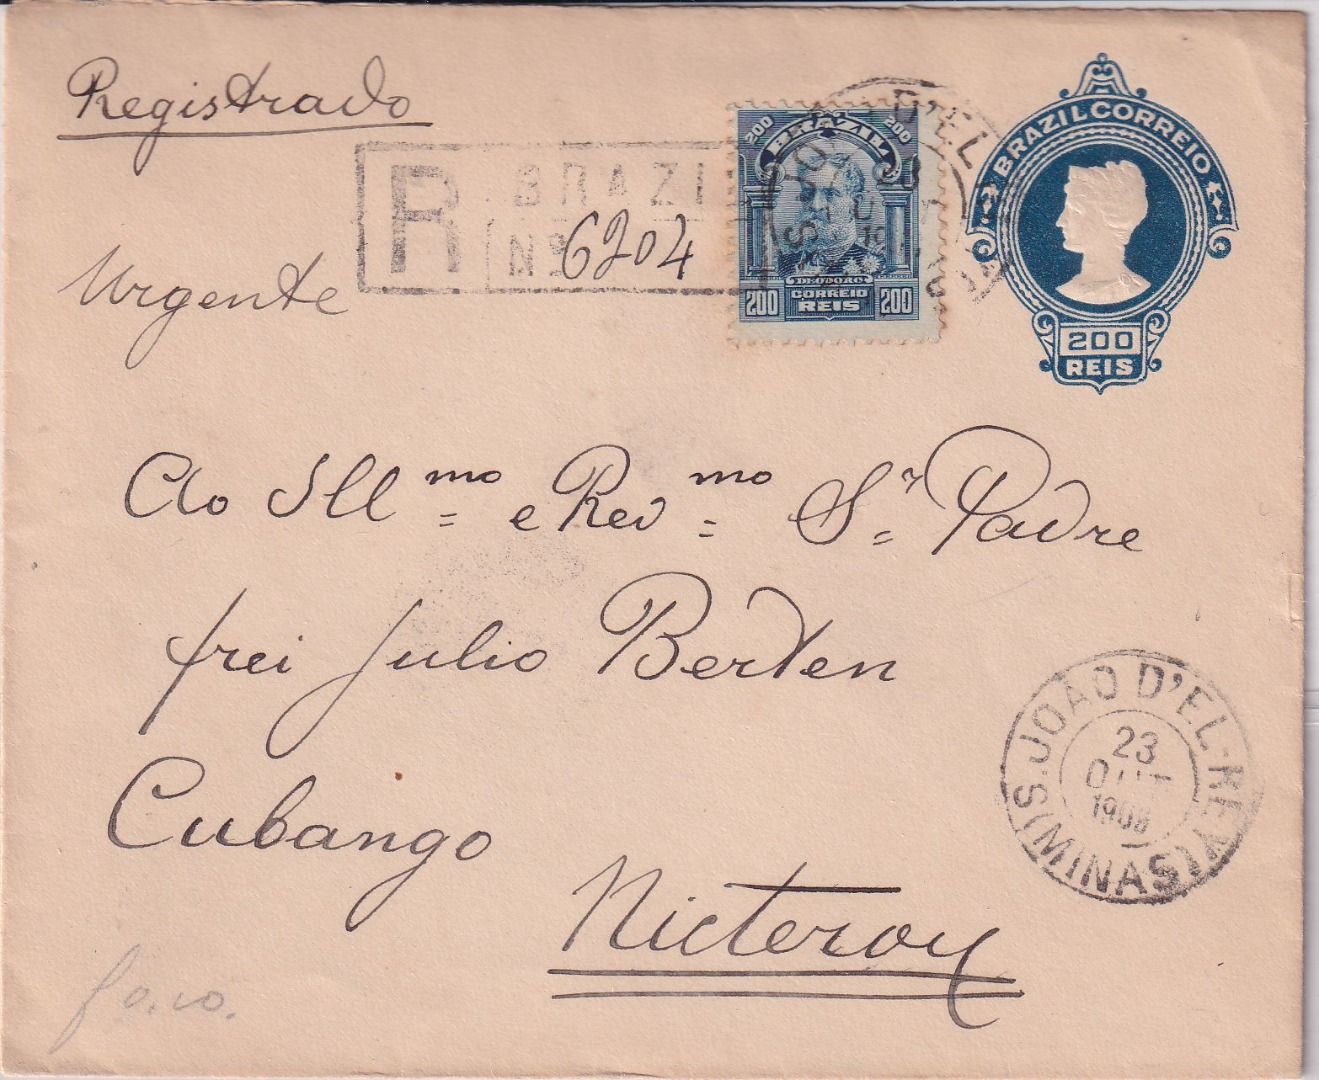 Registrado
R BRAZI
Nº 6204
Urgente
200 BRAZIL 200
DEODORO
200 CORREIO REIS 200
BRAZIL CORREIO
200
REIS
Ao Ill.mo e Rev.mo Sr. Padre
frei Julio Berten
Cubango
Nicteroy
S. JOÃO D'EL-REY (MINAS)
23
OUT
1908